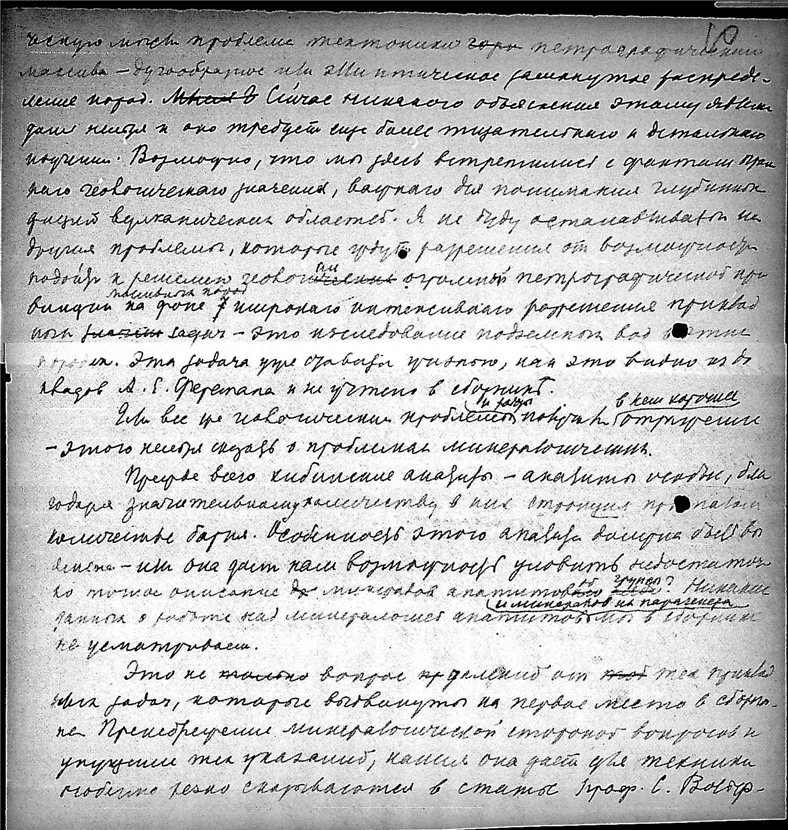 10
ческую мысль проблема тектоники петрографический
массива – дугообразное или эллиптическое замкнутое распреде-
ление пород. Сейчас никакого объяснения этому явлению
дать нельзя и оно требует еще более тщательного и детального
изучения. Возможно, что мы здесь встретились с фактами
геологического значения, важного для понимания глубинных
фаций вулканических областей. Я не буду останавливаться на
других проблемах, которые ждут разрешения от возможности
подойти к решению огромной петрографической про-
массивных пород
винции на фоне широкого интенсивного разрешения приклад
ных задач – это исследование подземных вод
Эта задача уже ставится, как это видно из до
кладов А. Е. Ферсмана и не учтено в сборнике.
и задачи в нем хорошее
Или все же геологические проблемы получили отражение
– этого нельзя сказать о проблемах минералогических.
Прежде всего хибинские апатиты – апатиты особые, бла
годаря значительному количеству в них стронция при малом
количестве бария. Особенность этого апатита должна быть вы
яснена – или она дает нам возможность уловить недостаточ
но точное описание минералов апатитовой группы? Никаких
и минералов их парагенеза
данных о работе над минералогией апатитов мы в сборнике
не усматриваем.
Это не только вопрос удалений от тех приклад
ных задач, которые выдвинуты на первое место в сборни-
ке. Пренебрежение минералогической стороной вопросов и
упущение тех указаний, какие она дает для техники
особенно резко сказываются в статье проф. С. Вольф-